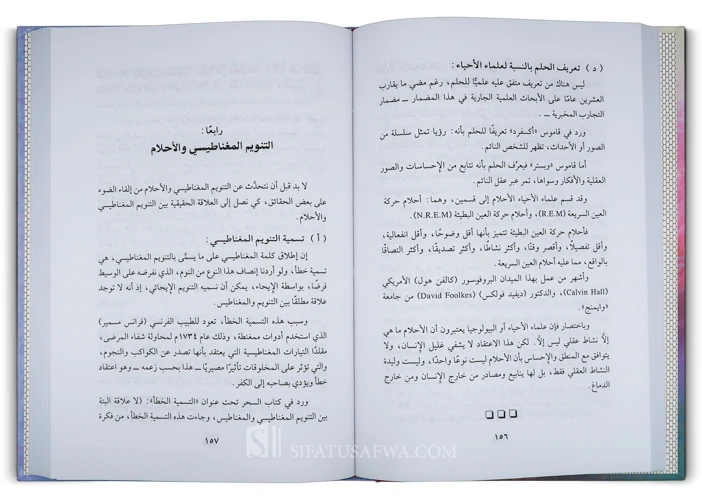 ( د ) تعريف الحلم بالنسبة لعلماء الأحياء :
ليس هناك من تعريف متفق عليه علميًّا للحلم، رغم مضي ما يقارب
العشرين عامًا على الأبحاث العلمية الجارية في هذا المضمار ــ مضمار
التجارب المخبرية ــ .
ورد في قاموس «أكسفرد» تعريفًا للحلم بأنه: رؤيا تمثل سلسلة من
الصور أو الأحداث، تظهر للشخص النائم.
أما قاموس «وبستر» فيعرَّف الحلم بأنه تتابع من الإحساسات والصور
العقلية والأفكار وسواها، تمر عبر عقل النائم.
وقد قسم علماء الأحياء الأحلام إلى قسمين، وهما: أحلام حركة
العين السريعة (R.E.M)، وأحلام حركة العين البطيئة (N.R.E.M).
فأحلام حركة العين البطيئة تتميز بأنها أقل وضوحًا، وأقل انفعالية،
وأقل تفصيلًا، وأقصر وقتًا، وأكثر نشاطًا، وأكثر تصديقًا، وأكثر التصاقًا
بالواقع، مما عليه أحلام العين السريعة.
وأشهر من عمل بهذا الميدان البروفوسور (كالفن هول) الأمريكي
(Calvin Hall)، والدكتور (ديفيد فولكس) (David Foolkes) من جامعة
«وايمنج».
وباختصار فإن علماء الأحياء أو البيولوجيا يعتبرون أن الأحلام ما هي
إلَّا نشاط عقلي ليس إلَّا. لكن هذا الاعتقاد لا يشفي غليل الإنسان، ولا
يتوافق مع المنطق والإحساس بأن الأحلام ليست نوعًا واحدًا، وليست وليدة
النشاط العقلي فقط، بل لها ينابيع ومصادر من خارج الإنسان ومن خارج
الدماغ.
١٥٦
رابعًا:
التنويم المغناطيسي والأحلام
لا بد قبل أن نتحدَّث عن التنويم المغناطيسي والأحلام من إلقاء الضوء
على بعض الحقائق، كي نصل إلى العلاقة الحقيقية بين التنويم المغناطيسي
والأحلام.
( أ ) تسمية التنويم المغناطيسي :
إن إطلاق كلمة المغناطيسي على ما يسمَّى بالتنويم المغناطيسي، هي
تسمية خطأ، ولو أردنا إنصاف هذا النوع من النوم، الذي نفرضه على الوسيط
فرضًا، بواسطة الإيحاء، يمكن أن نسميه التنويم الإيحائي، إذ أنه لا توجد
علاقة مطلقًا بين التنويم والمغناطيس.
وسبب هذه التسمية الخطأ، تعود للطبيب الفرنسي (فرانس مسمير)
الذي استخدم أدوات ممغنطة، وذلك عام ١٧٣٤م لمحاولة شفاء المرضى،
مقلدًا التيارات المغناطيسية التي يعتقد بأنها تصدر عن الكواكب والنجوم،
والتي تؤثر على المخلوقات تأثيرًا مصيريًّا ــ هذا بحسب زعمه ــ وهو اعتقاد
خطأ ويؤدي بصاحبه إلى الكفر.
ورد في كتاب السحر تحت عنوان «التسمية الخطأ»: (لا علاقة البتة
بين التنويم المغناطيسي والمغناطيس، وجاءت هذه التسمية الخطأ، من فكرة
١٥٧
SIFATUSAFWA.COM